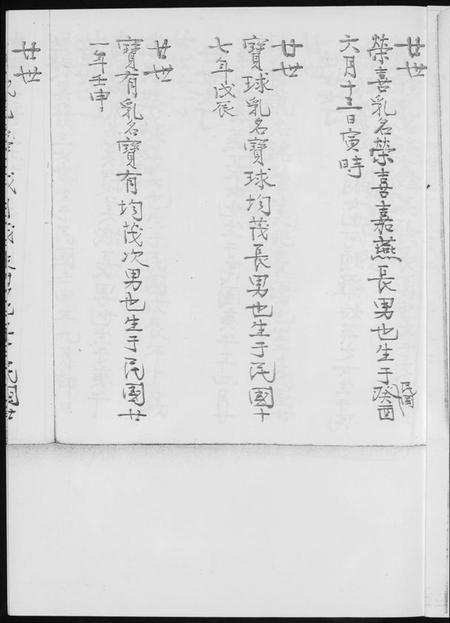 廿世
榮喜乳名榮喜嘉燕長男也生于民國癸酉
六月十三日寅時
廿世
寶球乳名寶球均茂長男也生于民國十
七年戊辰
廿世
寶有乳名寶有均茂次男也生于民國廿
一年壬申
廿世